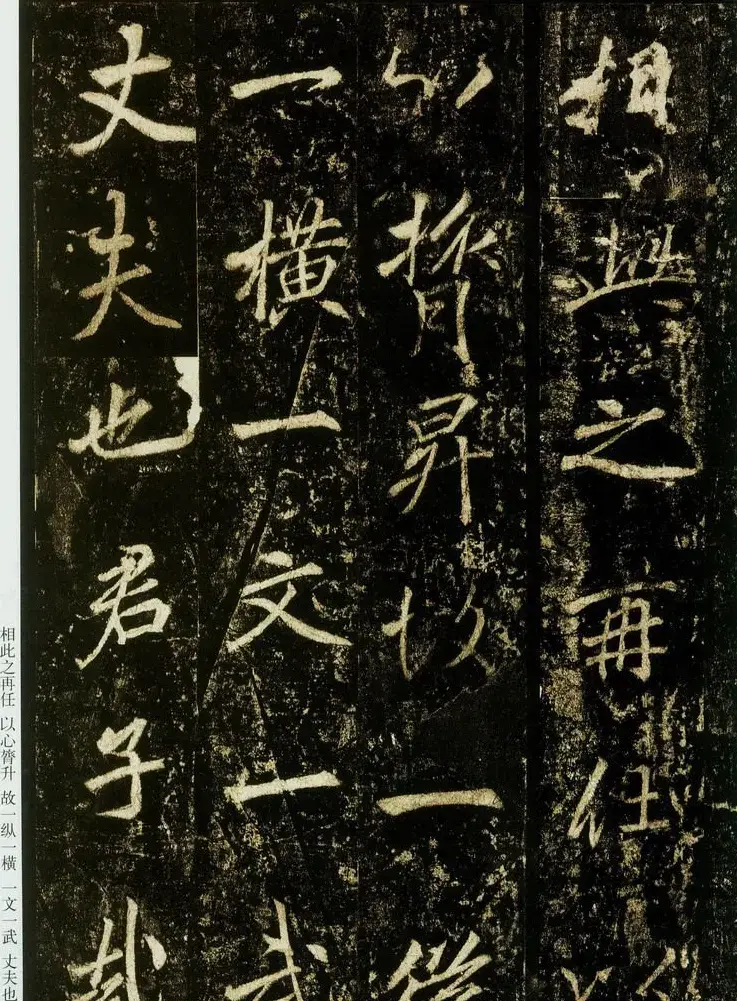 相此之再任以
心膂昇故一從
一橫一文一武
丈夫也君子哉
相此之再任 以心膂升 故一纵一横 一文一武 丈夫也